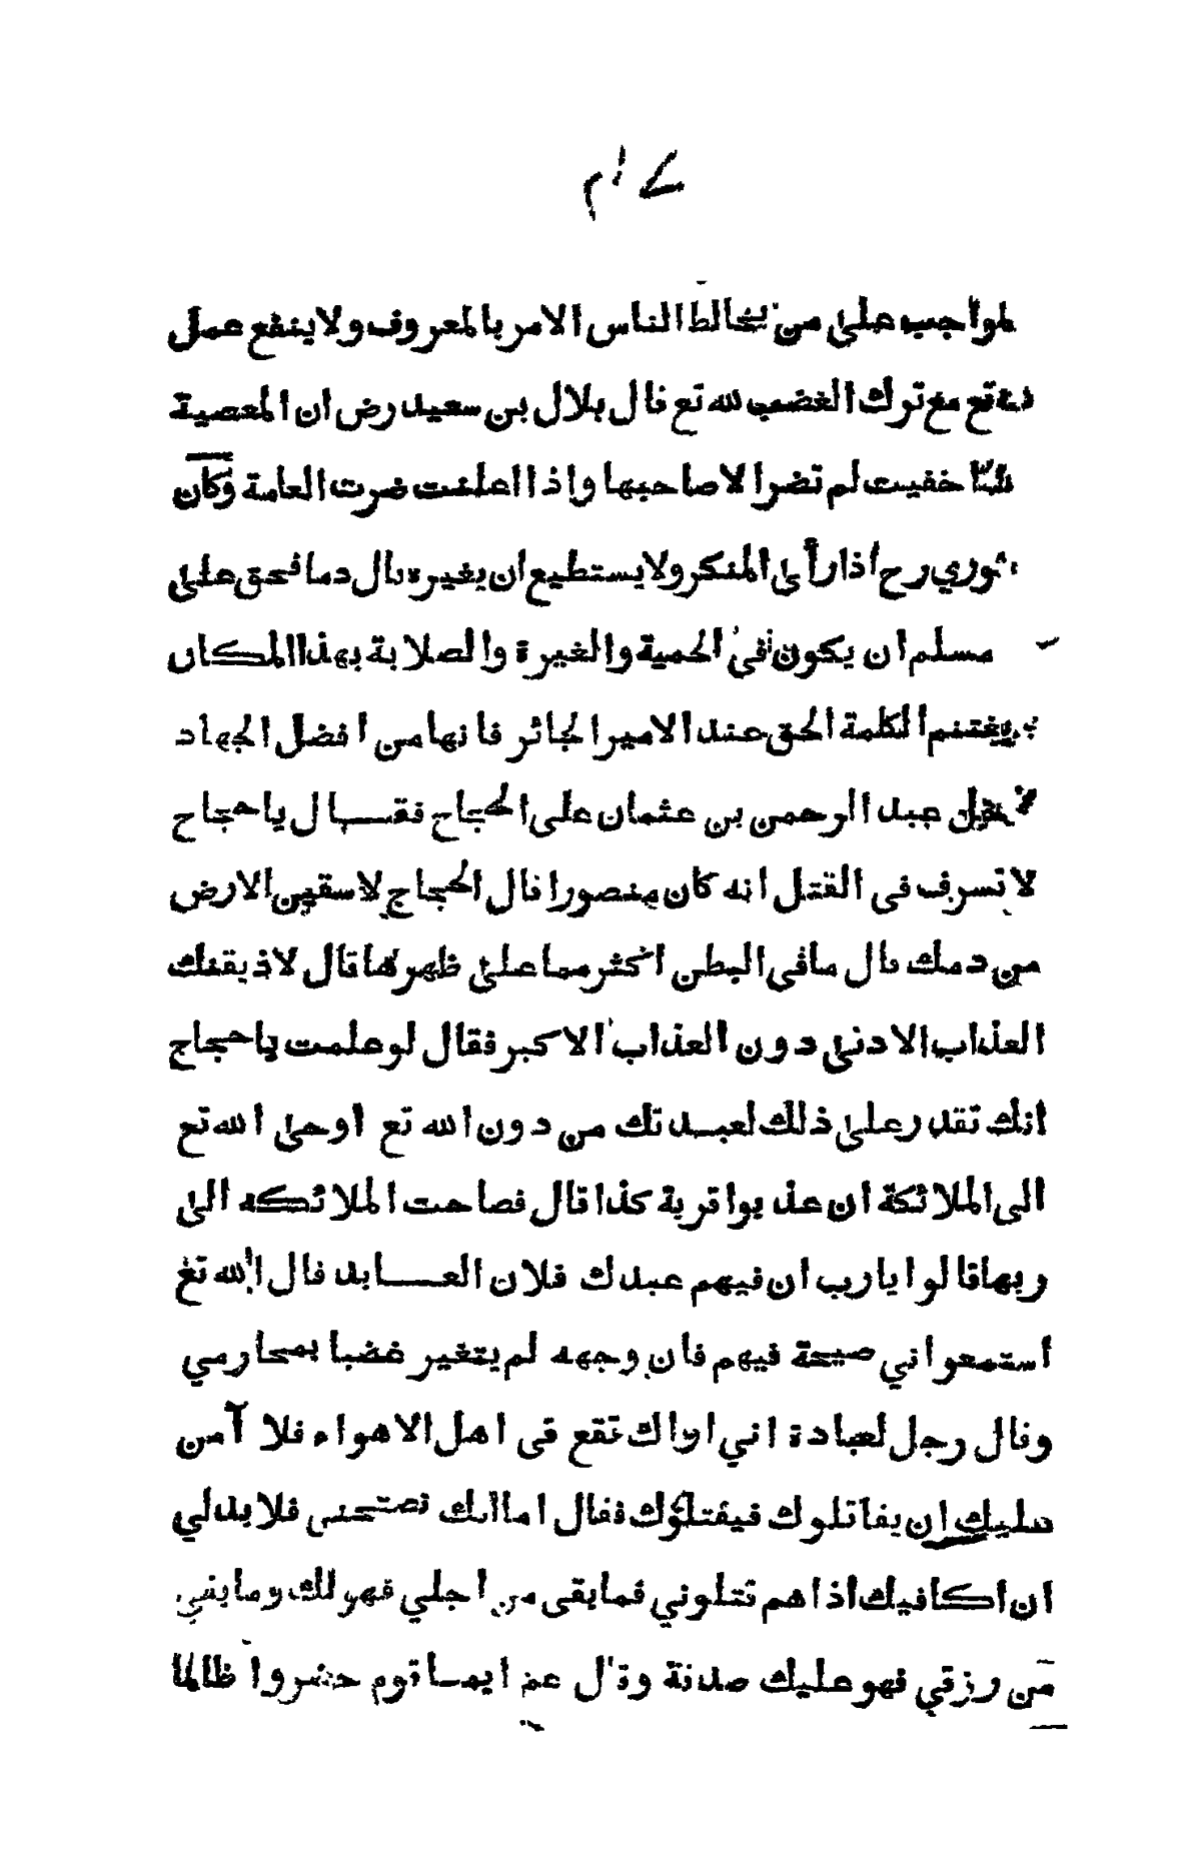 لمواجب على من يخالط الناس الامر بالمعروف ولا ينفع عمل
مع ترك الغضب لله تع قال بلال بن سعيد رض ان المعصية
خفيت لم تضر الا صاحبها واذا اعلنت ضرت العامة وكان
ثوري رح اذا رأى المنكر ولا يستطيع ان يغيره بال دما فحق على
مسلم ان يكون فى الحمية والغيرة والصلابة بهذا المكان
يغتنم الكلمة الحق عند الامير الجائر فانها من افضل الجهاد
عبد الرحمن بن عثمان على الحجاج فقال يا حجاج
لا تسرف فى القتل انه كان منصورا قال الحجاج لاسقين الارض
من دمك قال ما فى البطن اكثر مما على ظهرها قال لاذيقنك
العذاب الادنى دون العذاب الاكبر فقال لو علمت يا حجاج
انك تقدر على ذلك لعبدتك من دون الله تع اوحى الله تع
الى الملائكة ان عذبوا قرية كذا قال فصاحت الملائكه الى
ربها قالوا يارب ان فيهم عبدك فلان العابد قال الله تع
استمعواني صيحة فيهم فان وجهه لم يتغير غضبا بمحارمي
وقال رجل لعبادة اني اراك تقع فى اهل الاهواء فلا آمن
عليك ان يقاتلوك فيقتلوك فقال اما انك نصحتنى فلا بد لي
ان اكافيك اذا هم قتلوني فما بقى من اجلي فهو لك وما بقي
من رزقي فهو عليك صدقة وقال عم ايما قوم حضروا ظالما